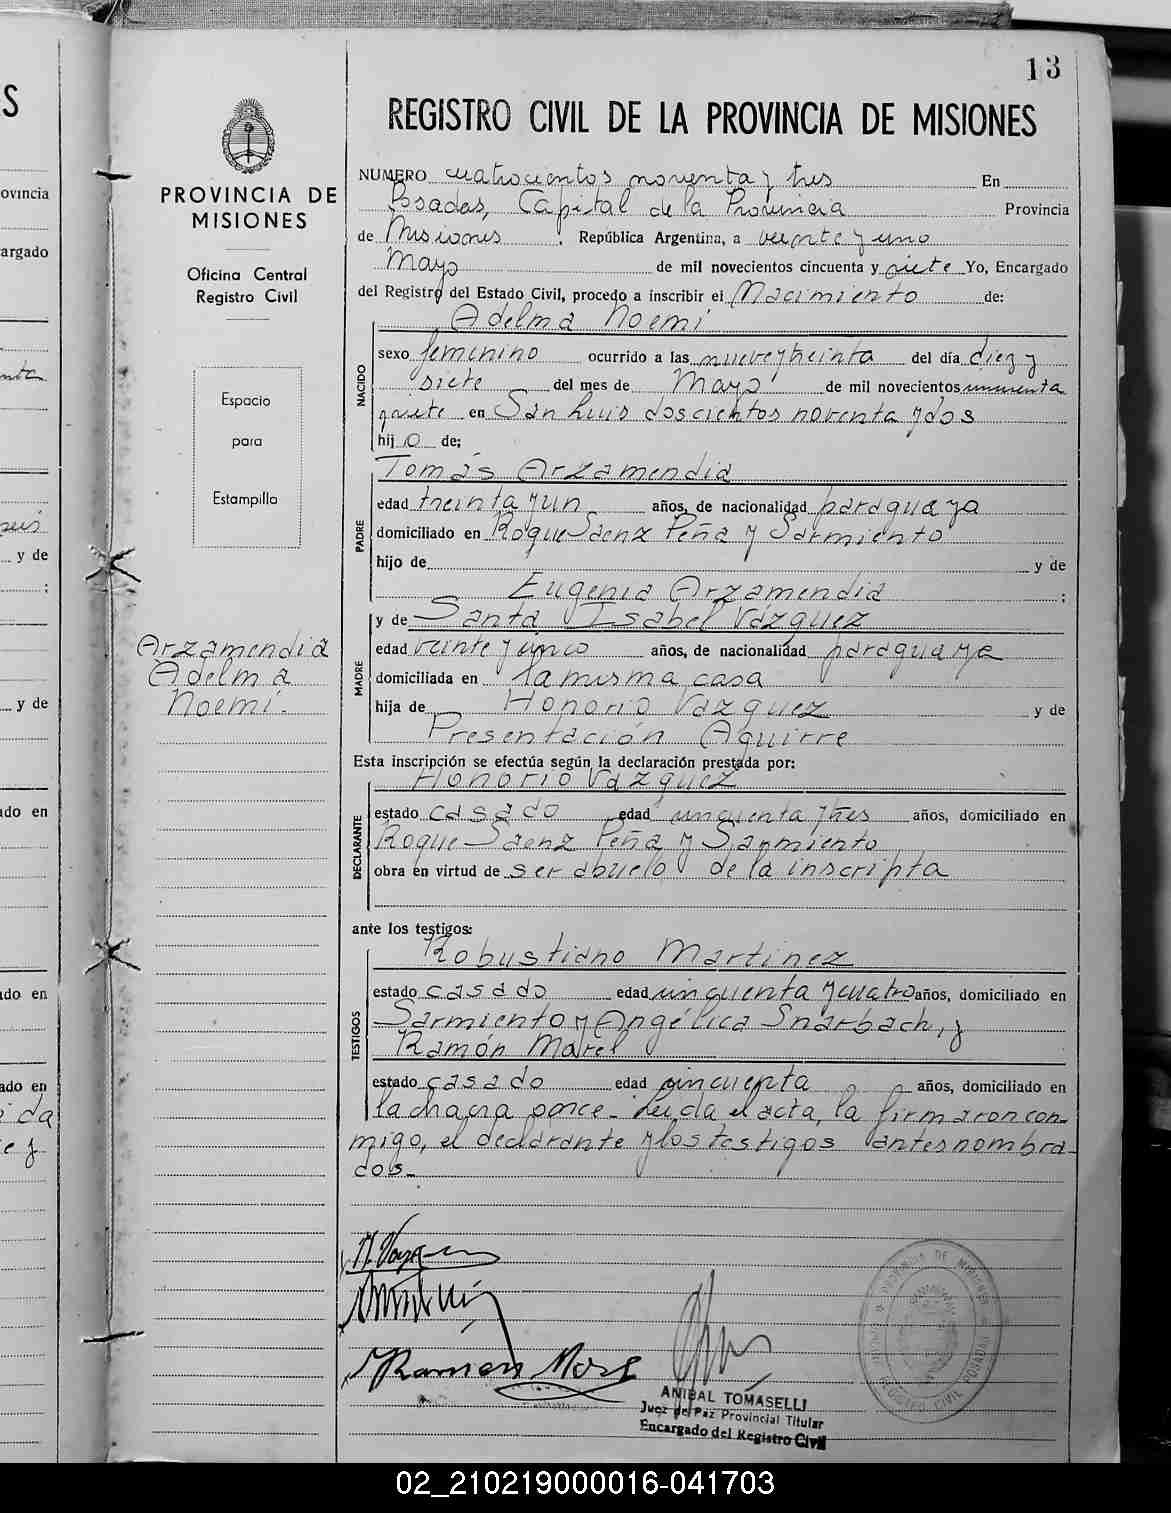 13
REGISTRO CIVIL DE LA PROVINCIA DE MISIONES
PROVINCIA DE
MISIONES
Oficina Central
Registro Civil
Espacio
para
Estampilla
Arzamendia
Adelma
Noemí.
NUMERO cuatrocientos noventa y tres En
Posadas, Capital de la Provincia Provincia
de Misiones, República Argentina, a veinte y uno
Mayo de mil novecientos cincuenta y siete Yo, Encargado
del Registro del Estado Civil, procedo a inscribir el Nacimiento de:
Adelma Noemí
NACIDO
sexo femenino ocurrido a las nueve y treinta del día diez y
siete del mes de Mayo de mil novecientos cincuenta
y siete en San Luis doscientos noventa y dos
hijo de:
Tomás Arzamendia
PADRE
edad treinta y un años, de nacionalidad paraguaya
domiciliado en Roque Saenz Peña y Sarmiento
hijo de y de
Eugenia Arzamendia ;
y de Santa Isabel Vázquez
MADRE
edad veinte y cinco años, de nacionalidad paraguaya
domiciliada en la misma casa
hija de Honorio Vázquez y de
Presentación Aguirre
Esta inscripción se efectúa según la declaración prestada por:
Honorio Vázquez
DECLARANTE
estado casado edad cincuenta y tres años, domiciliado en
Roque Saenz Peña y Sarmiento
obra en virtud de ser abuelo de la inscripta
ante los testigos:
Robustiano Martinez
TESTIGOS
estado casado edad cincuenta y cuatro años, domiciliado en
Sarmiento y Angélica Snarbach, y
Ramón Marel
estado casado edad cincuenta años, domiciliado en
la chacra once - Leida el acta, la firmaron con-
migo, el declarante y los testigos antes nombra-
dos.-
Ramón
ANIBAL TOMASELLI
Juez de Paz Provincial Titular
Encargado del Registro Civil
PROVINCIA DE MISIONES
REGISTRO CIVIL POSADAS
S
ovincia
argado
y de
;
y de
ado en
ado en
ado en
02_210219000016-041703